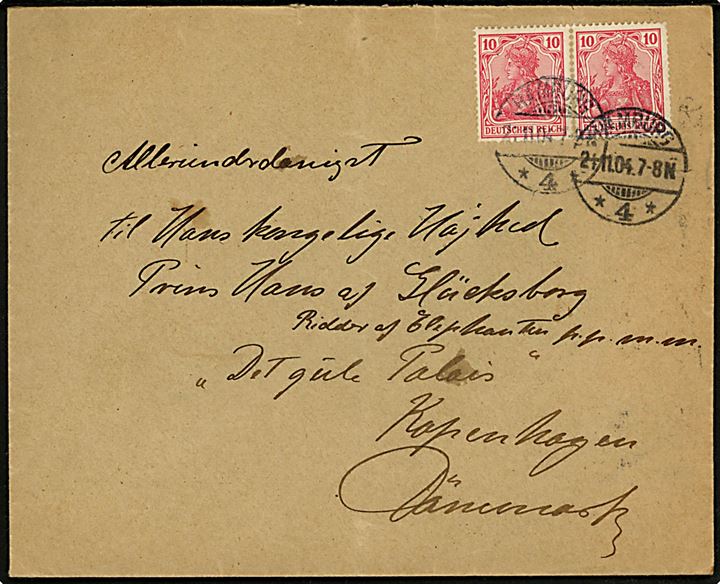 10 10 10 10
DEUTSCHES REICH
HAMBURG HAMBURG
21.11.04.7-8N
* 4 * * 4 *
Allerunderdanigst
til Hans kongelige Højhed
Prins Hans af Glücksborg
Ridder af Elephanten p.p. m.m.
"Det gule Palais"
Kopenhagen
Dänemark